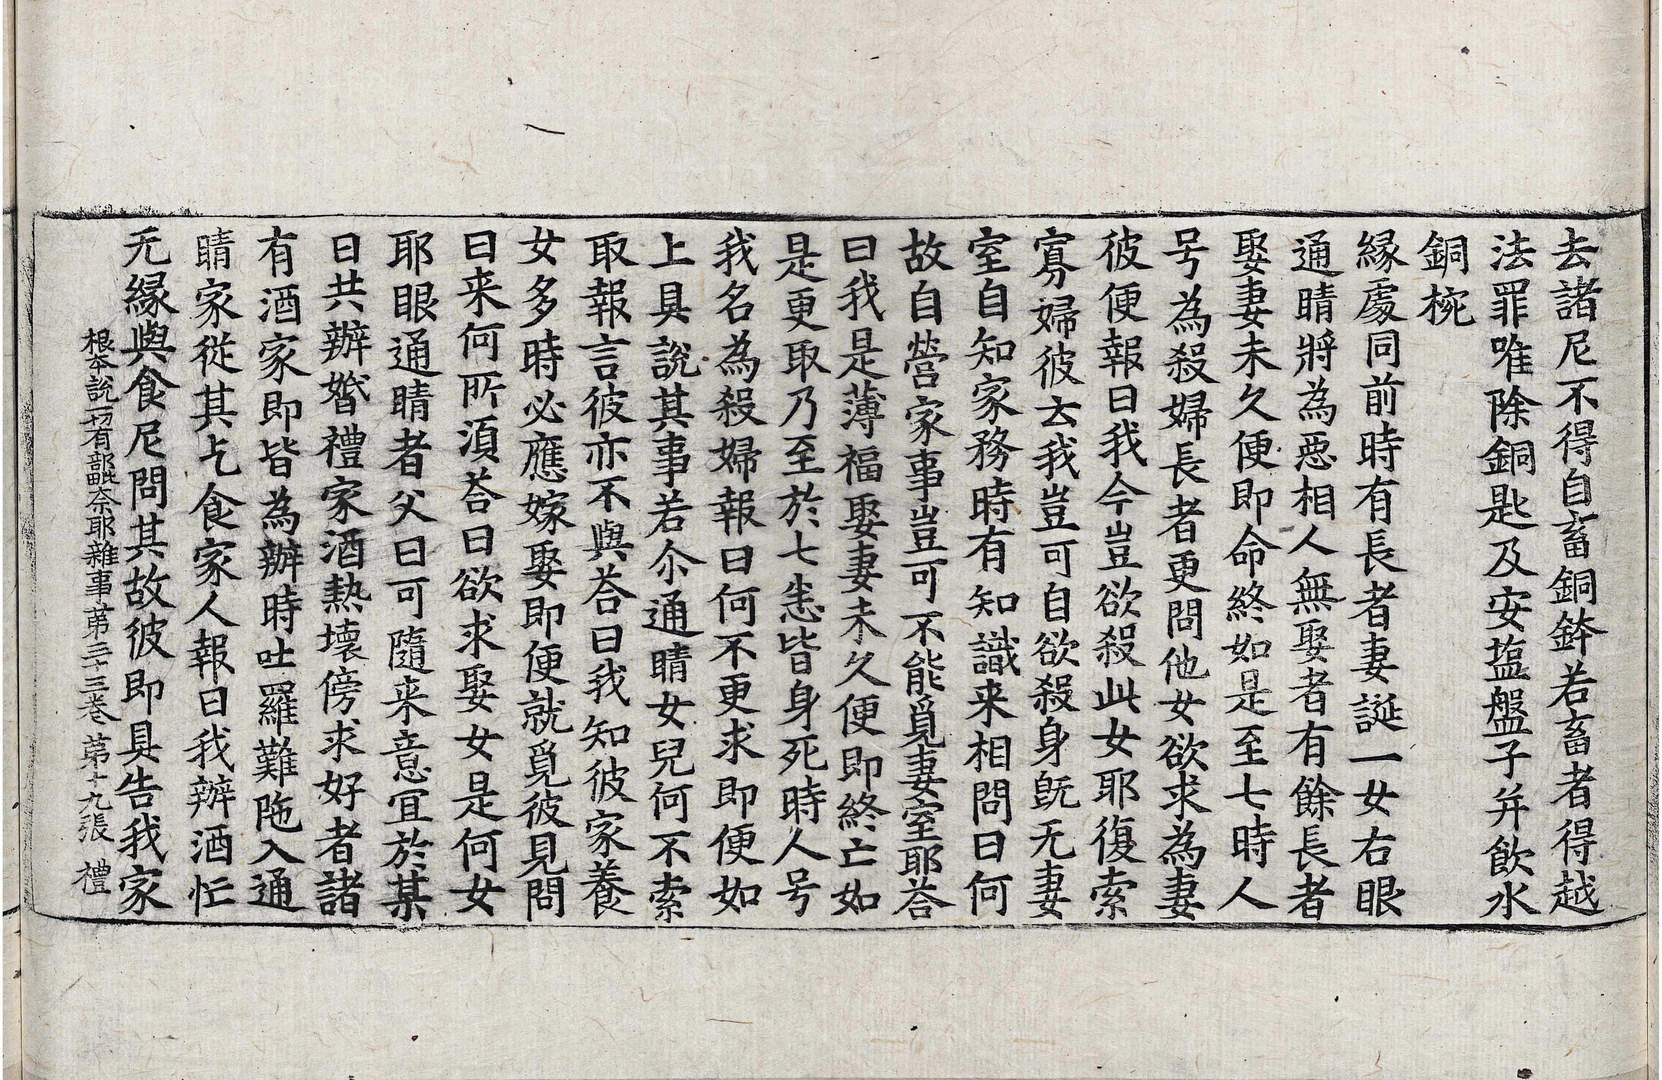 去諸尼不得自畜銅鉢若畜者得越
法罪唯除銅匙及安塩盤子并飲水
銅椀
緣處同前時有長者妻誕一女右眼
通睛將為惡相人無娶者有餘長者
娶妻未久便即命終如是至七時人
号為殺婦長者更問他女欲求為妻
彼便報曰我今豈欲殺此女耶復索
寡婦彼云我豈可自欲殺身旣无妻
室自知家務時有知識来相問曰何
故自營家事豈可不能覓妻室耶荅
曰我是薄福娶妻未久便即終亡如
是更取乃至於七悉皆身死時人号
我名為殺婦報曰何不更求即便如
上具說其事若尒通睛女兒何不索
取報言彼亦不與荅曰我知彼家養
女多時必應嫁娶即便就覓彼見問
曰来何所湏荅曰欲求娶女是何女
耶眼通睛者父曰可隨来意冝於某
日共辦婚禮家酒熱壞傍求好者諸
有酒家即皆為辦時吐羅難陁入通
睛家從其乞食家人報曰我辦酒忙
无緣與食尼問其故彼即具告我家
根本說一切有部毗奈耶雜事第三十三卷 第十九張 禮